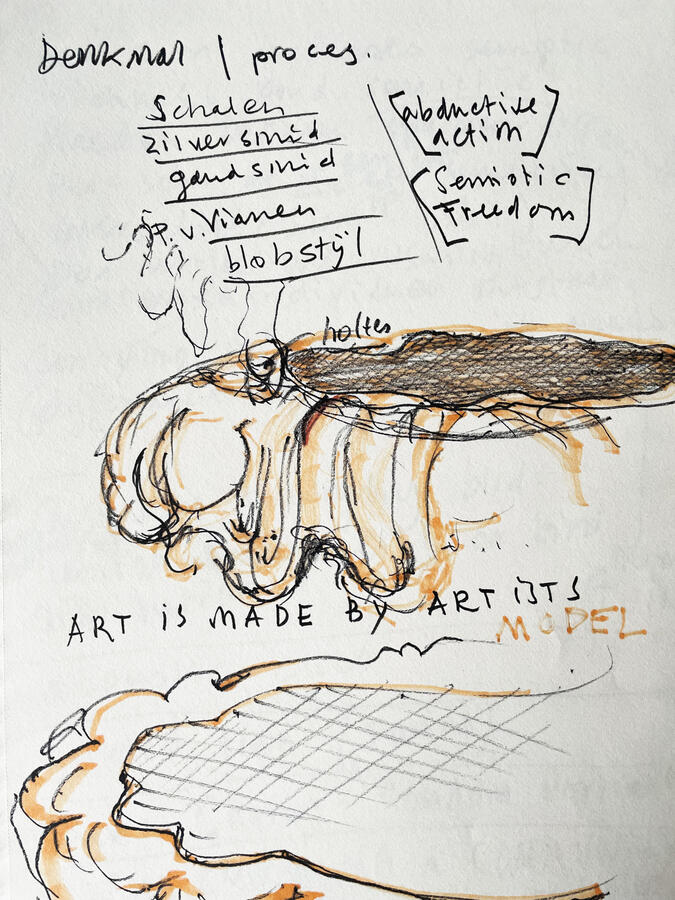 Denkmal / proces.
Schalen
zilversmid
goudsmid
P. v. Vianen
blobstijl
[abductive
action]
[Semiotic
Freedom]
holtes
ART iS MADE BY ARTISTS
MODEL